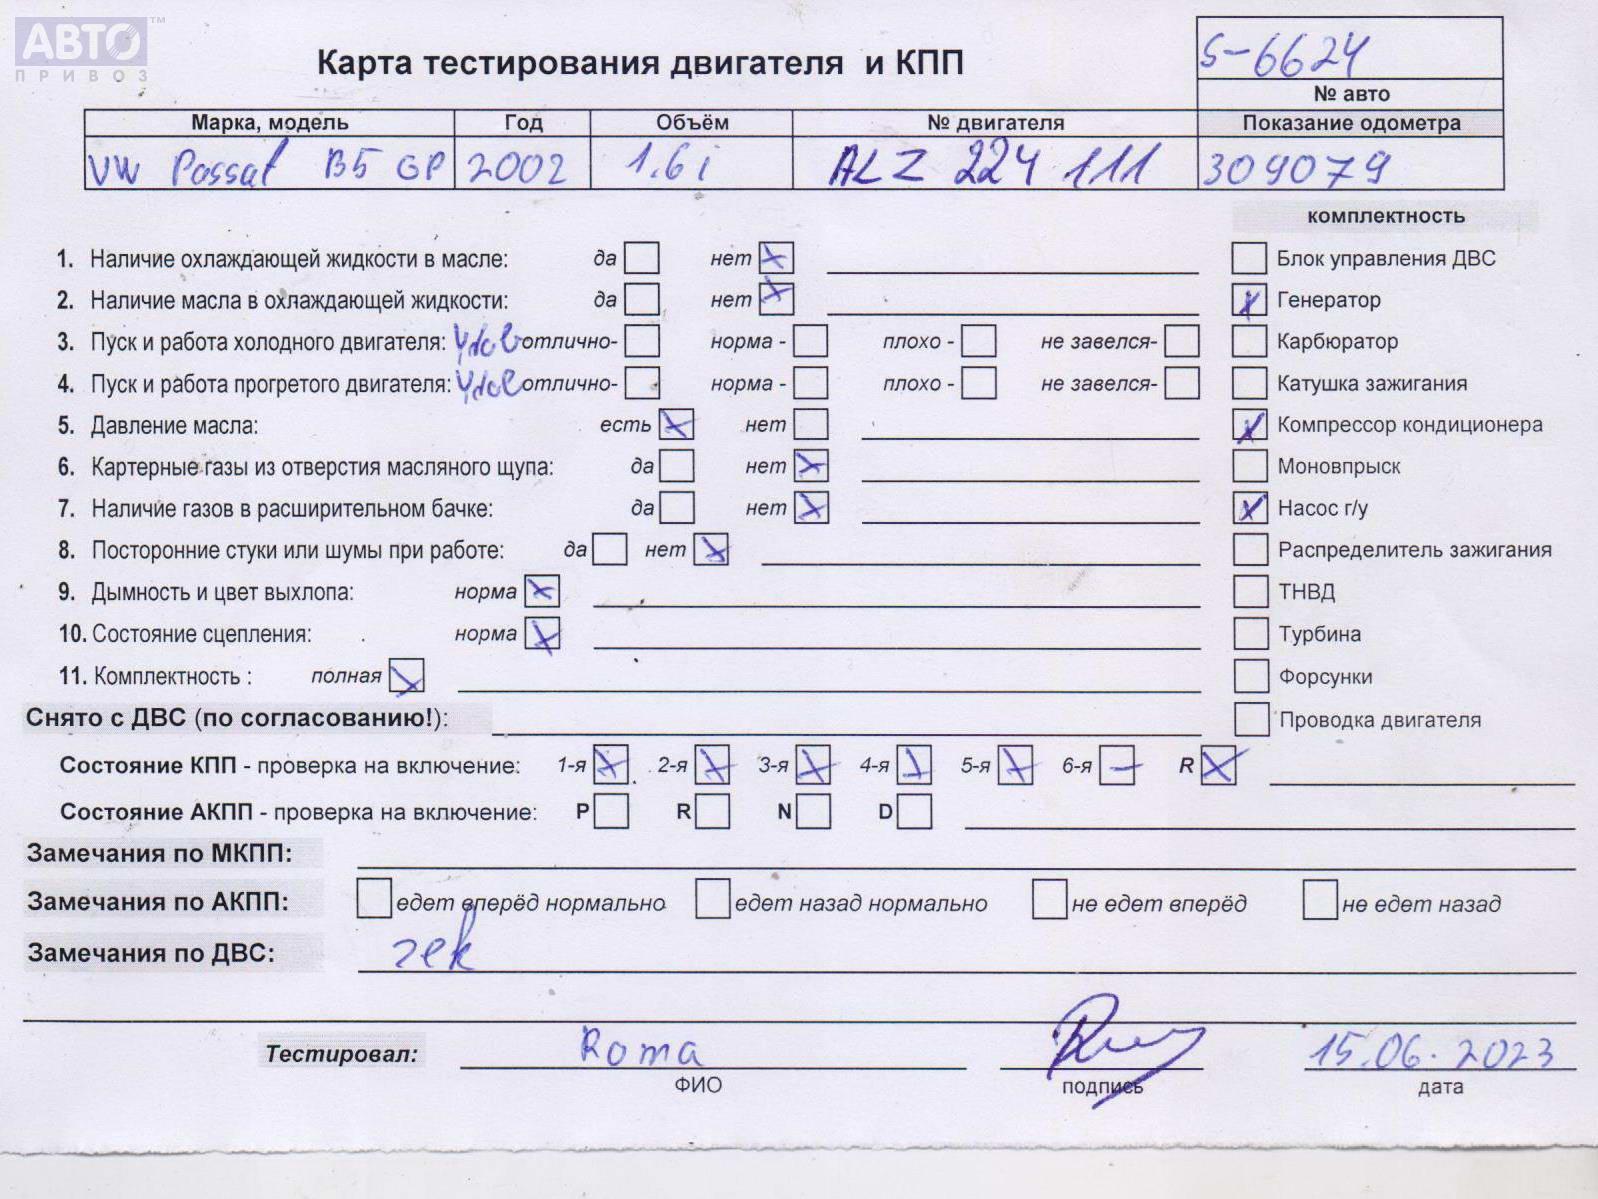 АВТО™
ПРИВОЗ
Карта тестирования двигателя и КПП
S-6624
№ авто
Марка, модель Год Объём № двигателя Показание одометра
VW Passat B5 GP 2002 1.6i ALZ 224 111 309079
комплектность
1. Наличие охлаждающей жидкости в масле: да нет Блок управления ДВС
2. Наличие масла в охлаждающей жидкости: да нет Генератор
3. Пуск и работа холодного двигателя: Удов отлично- норма - плохо - не завелся- Карбюратор
4. Пуск и работа прогретого двигателя: Удов отлично- норма - плохо - не завелся- Катушка зажигания
5. Давление масла: есть нет Компрессор кондиционера
6. Картерные газы из отверстия масляного щупа: да нет Моновпрыск
7. Наличие газов в расширительном бачке: да нет Насос г/у
8. Посторонние стуки или шумы при работе: да нет Распределитель зажигания
9. Дымность и цвет выхлопа: норма ТНВД
10. Состояние сцепления: норма Турбина
11. Комплектность : полная Форсунки
Снято с ДВС (по согласованию!): Проводка двигателя
Состояние КПП - проверка на включение: 1-я 2-я 3-я 4-я 5-я 6-я R
Состояние АКПП - проверка на включение: P R N D
Замечания по МКПП:
Замечания по АКПП: едет вперёд нормально едет назад нормально не едет вперёд не едет назад
Замечания по ДВС: чек
Тестировал: Roma 15.06.2023
ФИО подпись дата